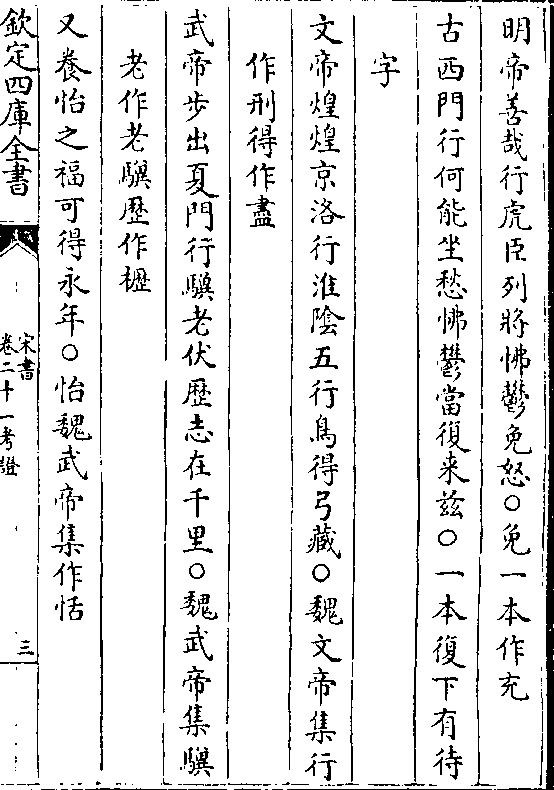 明帝善哉行虎臣列將怫鬱免怒○免一本作充
古西門行何能坐愁怫鬱當復来兹○一本復下有待
字
文帝煌煌京洛行淮陰五行鳥得弓藏○魏文帝集行
作刑得作盡
武帝步出夏門行驥老伏歷志在千里○魏武帝集驥
老作老驥歷作櫪
又養怡之福可得永年○怡魏武帝集作恬
欽定四庫全書
宋書
卷二十一考證
三